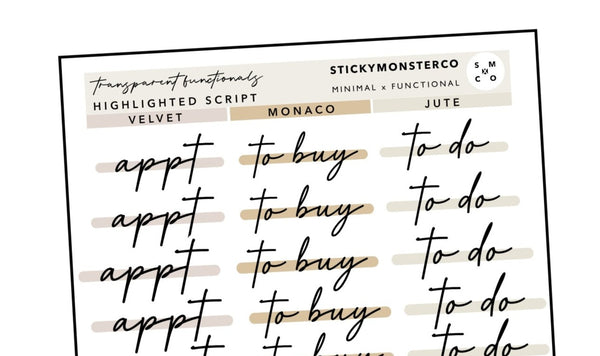 transparent functionals
STICKYMONSTERCO
S M
C O
HIGHLIGHTED SCRIPT
MINIMAL x FUNCTIONAL
VELVET
MONACO
JUTE
appt to buy to do
appt to buy to do
appt to buy to do
appt to buy to do
to buy to do